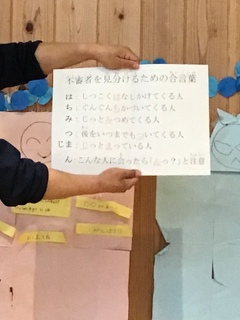 不審者を見分けるための合言葉
は：しつこくはなしかけてくる人
ち：ぐんぐんちかづいてくる人
み：じっとみつめてくる人
つ：後をいつまでもついてくる人
じま：じっとまっている人
ん：こんな人に会ったら「んっ？」と注意